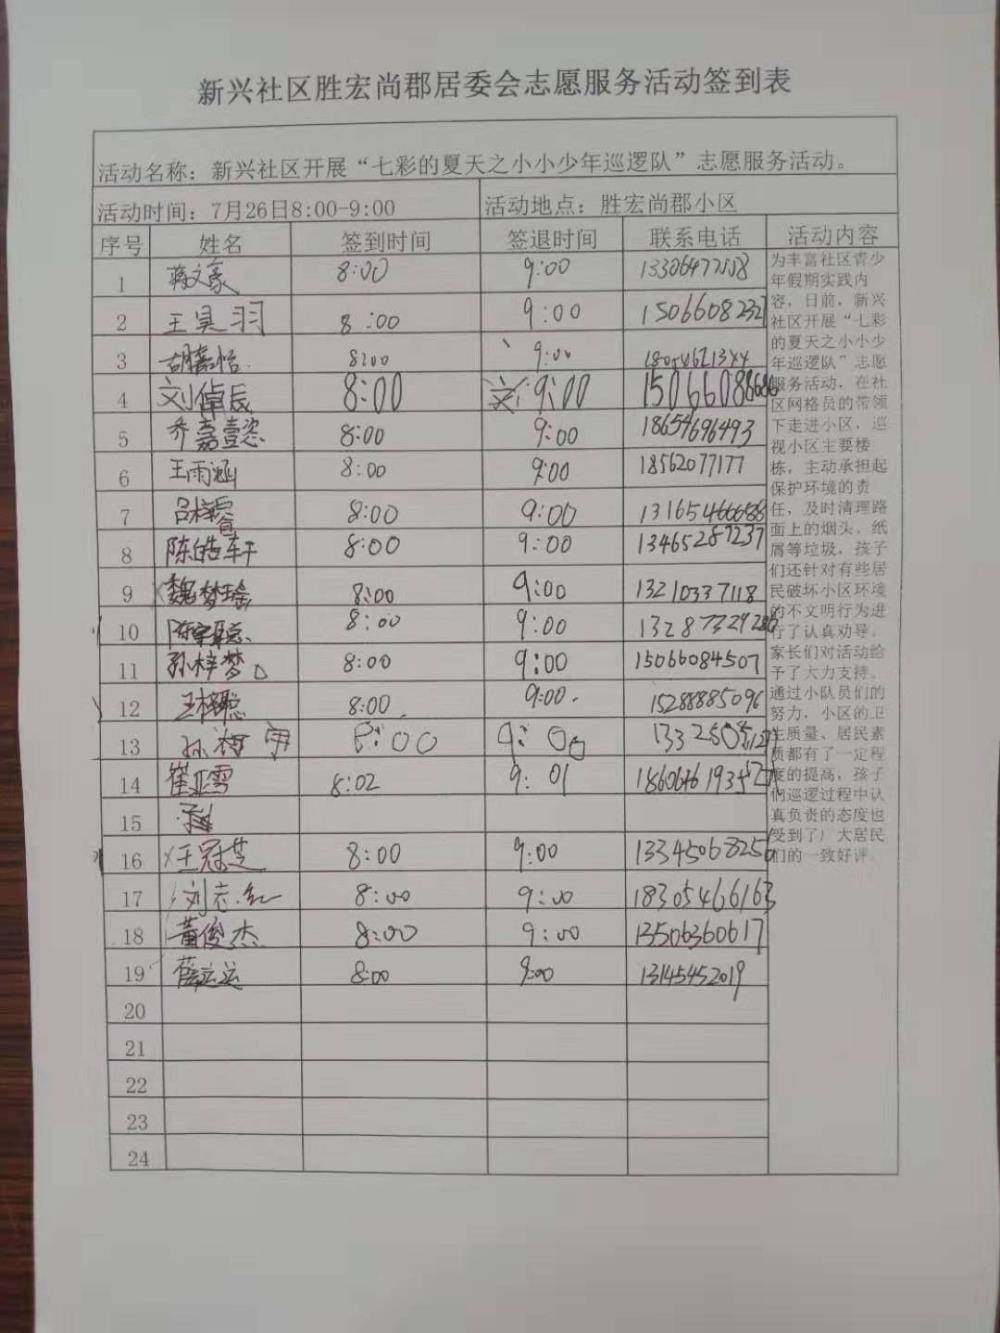 新兴社区胜宏尚郡居委会志愿服务活动签到表
活动名称：新兴社区开展“七彩的夏天之小小少年巡逻队”志愿服务活动。
活动时间：7月26日8:00-9:00 活动地点：胜宏尚郡小区
序号 姓名 签到时间 签退时间 联系电话 活动内容
1 蒋文豪 8:00 9:00
2 王昊羽 8:00 9:00 1506608232
3 胡嘉怡 8:00 9:00
4 刘倬辰 8:00 9:00
5 乔嘉懿 8:00 9:00 18654696493
6 王雨涵 8:00 9:00 18562077177
7 吕梓睿 8:00 9:00 13165466688
8 陈皓轩 8:00 9:00 13465287237
9 魏梦瑶 8:00 9:00 13210337118
10 8:00 9:00
11 孙梓梦 8:00 9:00 15066084507
12 8:00 9:00 15288885096
13 8:00 9:00
14 崔亚雪 8:02 9:01
15
16 王冠芝 8:00 9:00
17 刘志红 8:00 9:00 18305466163
18 董俊杰 8:00 9:00 13506360617
19 薛立运 8:00 9:00 13145452019
20
21
22
23
24
为丰富社区青少
年假期实践内
容，日前，新兴
社区开展“七彩
的夏天之小小少
年巡逻队”志愿
服务活动，在社
区网格员的带领
下走进小区，巡
视小区主要楼
栋，主动承担起
保护环境的责
任，及时清理路
面上的烟头、纸
屑等垃圾，孩子
们还针对有些居
民破坏小区环境
的不文明行为进
行了认真劝导。
家长们对活动给
予了大力支持。
通过小队员们的
努力，小区的卫
生质量、居民素
质都有了一定程
度的提高，孩子
们巡逻过程中认
真负责的态度也
受到了广大居民
们的一致好评。